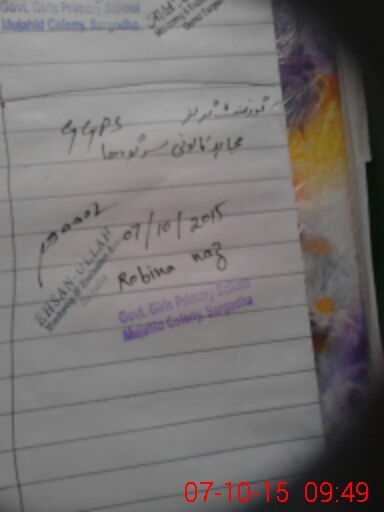 Govt. Girls Primary School
Mujahid Colony, Sargodha
GGPS
مجاہد کالونی سرگودھا
07/10/2015
EHSAN-ULLAH
Monitoring & Evaluation
Robina naz
Govt. Girls Primary School
Mujahid Colony, Sargodha
07-10-15 09:49